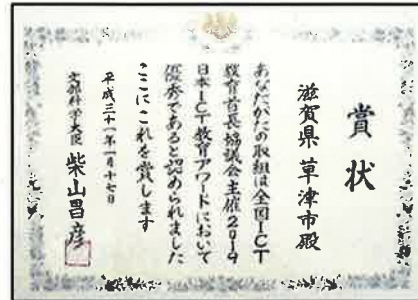 賞状
滋賀県草津市殿
あなたがたの取組は全国ICT
教育首長協議会主催2019
日本ICT教育アワードにおいて
優秀であると認められました
ここにこれを賞します
平成三十一年一月十七日
文部科学大臣 柴山昌彦